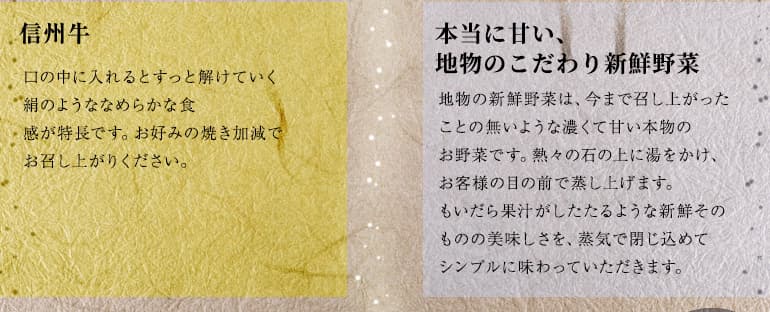 信州牛
口の中に入れるとすっと解けていく
絹のようななめらかな食
感が特長です。お好みの焼き加減で
お召し上がりください。
本当に甘い、
地物のこだわり新鮮野菜
地物の新鮮野菜は、今まで召し上がった
ことの無いような濃くて甘い本物の
お野菜です。熱々の石の上に湯をかけ、
お客様の目の前で蒸し上げます。
もいだら果汁がしたたるような新鮮その
ものの美味しさを、蒸気で閉じ込めて
シンプルに味わっていただきます。